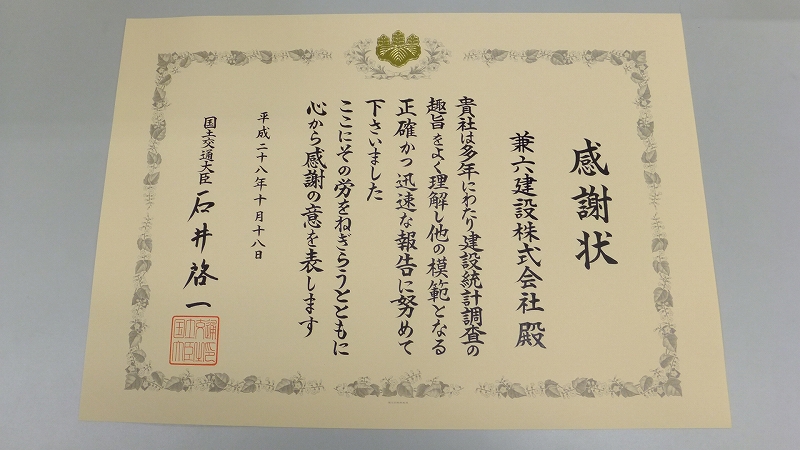 感謝状
兼六建設株式会社 殿
貴社は多年にわたり建設統計調査の
趣旨をよく理解し他の模範となる
正確かつ迅速な報告に努めて
下さいました
ここにその労をねぎらうとともに
心から感謝の意を表します
平成二十八年十月十八日
国土交通大臣 石井啓一